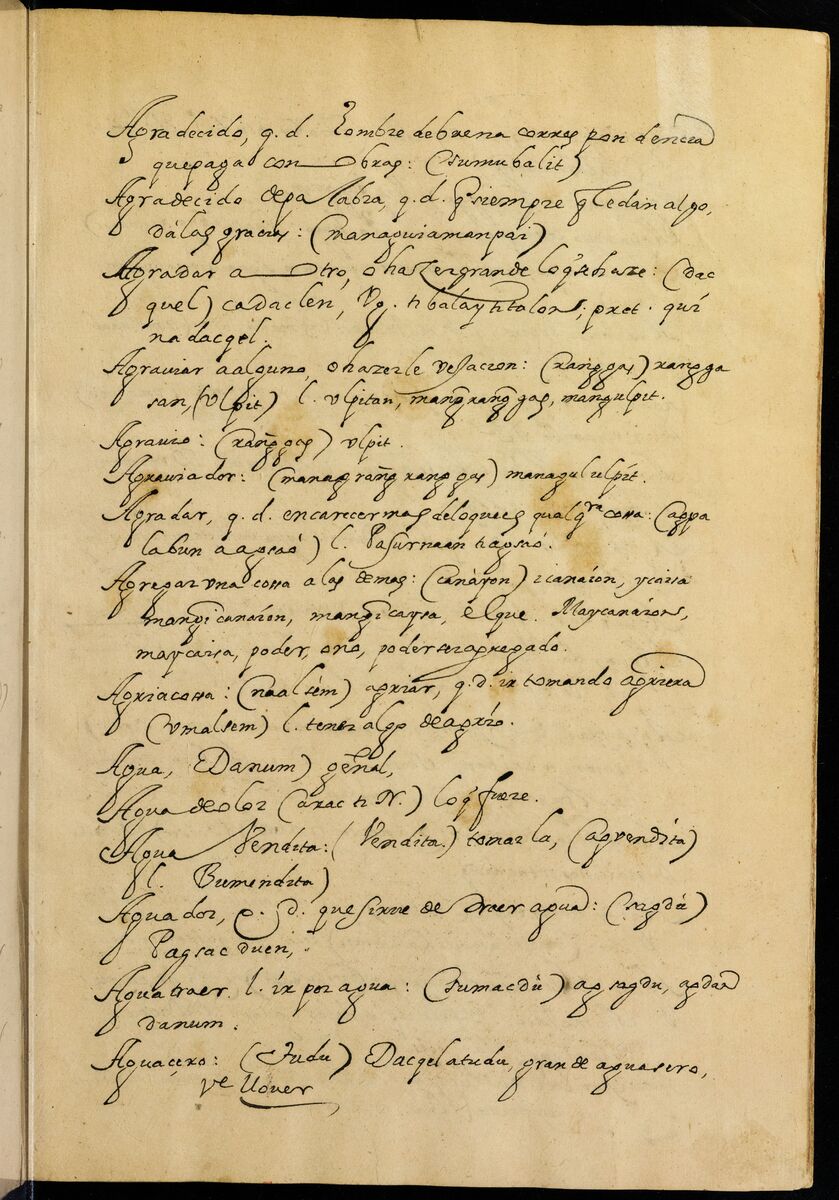 Agradecido, q. d. hombre de buena correspondencia
que paga con obras: (sumubalit)
Agradecido de palabra, q. d. q̃ siempre q̃ le dan algo,
dá las gracias: (managuiamanpai)
Agradar a otro, o hazer grande lo q̃ se haze: (dac
quel) cadaclen, Vg. ti balay ti talon; pret. qui
nadacqel.
Agrauiar a alguno, o hazerle vejacion: (rang̃gas) rang̃ga
san, (vlpit) l. vlpitan, mang̃rang̃gas, mangulpit.
Agrauio: (rang̃gas) vlpit.
Agrauiador: (manag̃rang̃rang̃gas) managulvlpit.
Agradar, q. d. encarecer mas de lo que es qualqra cossa: (agpa
labun a agsaó) l. Pasurnaan ti agsaó.
Agregar vna cossa a las demas: (canàyon) icanaión, ycaisa
mang̃icanaion, mang̃icaysa, él que. Maycanáion,
maycaisa, poder, o no, poder ser agregado.
Agria cossa: (naalsém) agriar, q. d. ir tomando agriera
(vmalsem) l. tener algo de agrio.
Agua, (Danum) gẽnal,
Agua de olor (arac ti N.) lo q̃ fuere.
Agua Vendita: (Vendita.) tomarla, (agvendita)
l. Bumendita)
Aguador, q. d. que sirue de traer agua: (sagdú)
Pagsacduen,
Agua traer l. ír por agua: (sumacdù) ag sagdu, agdan
danum.
Aguaçero: (Tudu) Dacqel a tudu, grande aguasero,
ve llouer